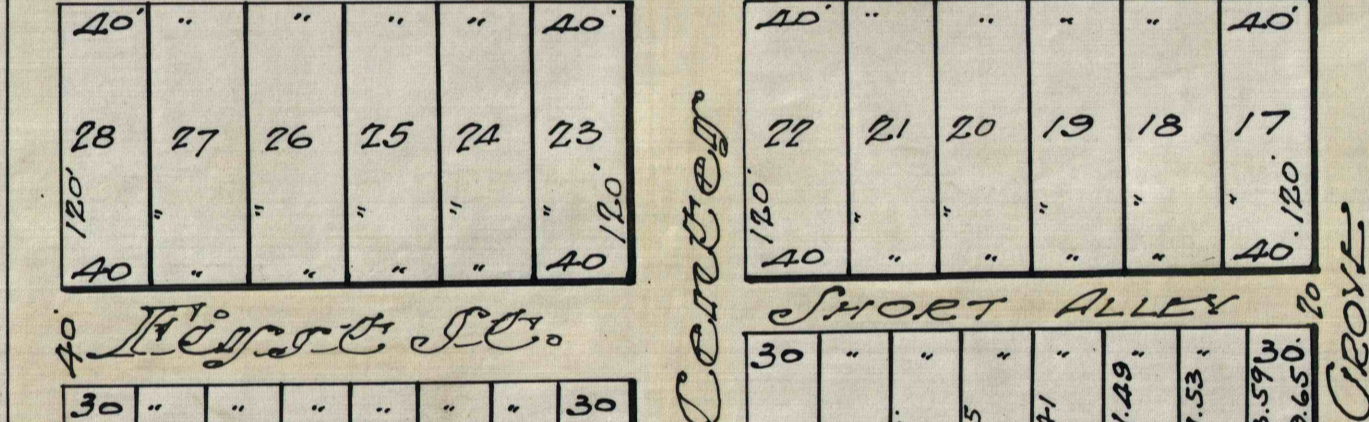 40' " " " " 40'
28 27 26 25 24 23
120' " " " " " 120'
40 " " " " 40
40' First St.
30 " " " " " " 30
Center
40' " " " " 40'
22 21 20 19 18 17
120' " " " " " 120'
40 " " " " 40
SHORT ALLEY 20
30 " " " " " " 30.